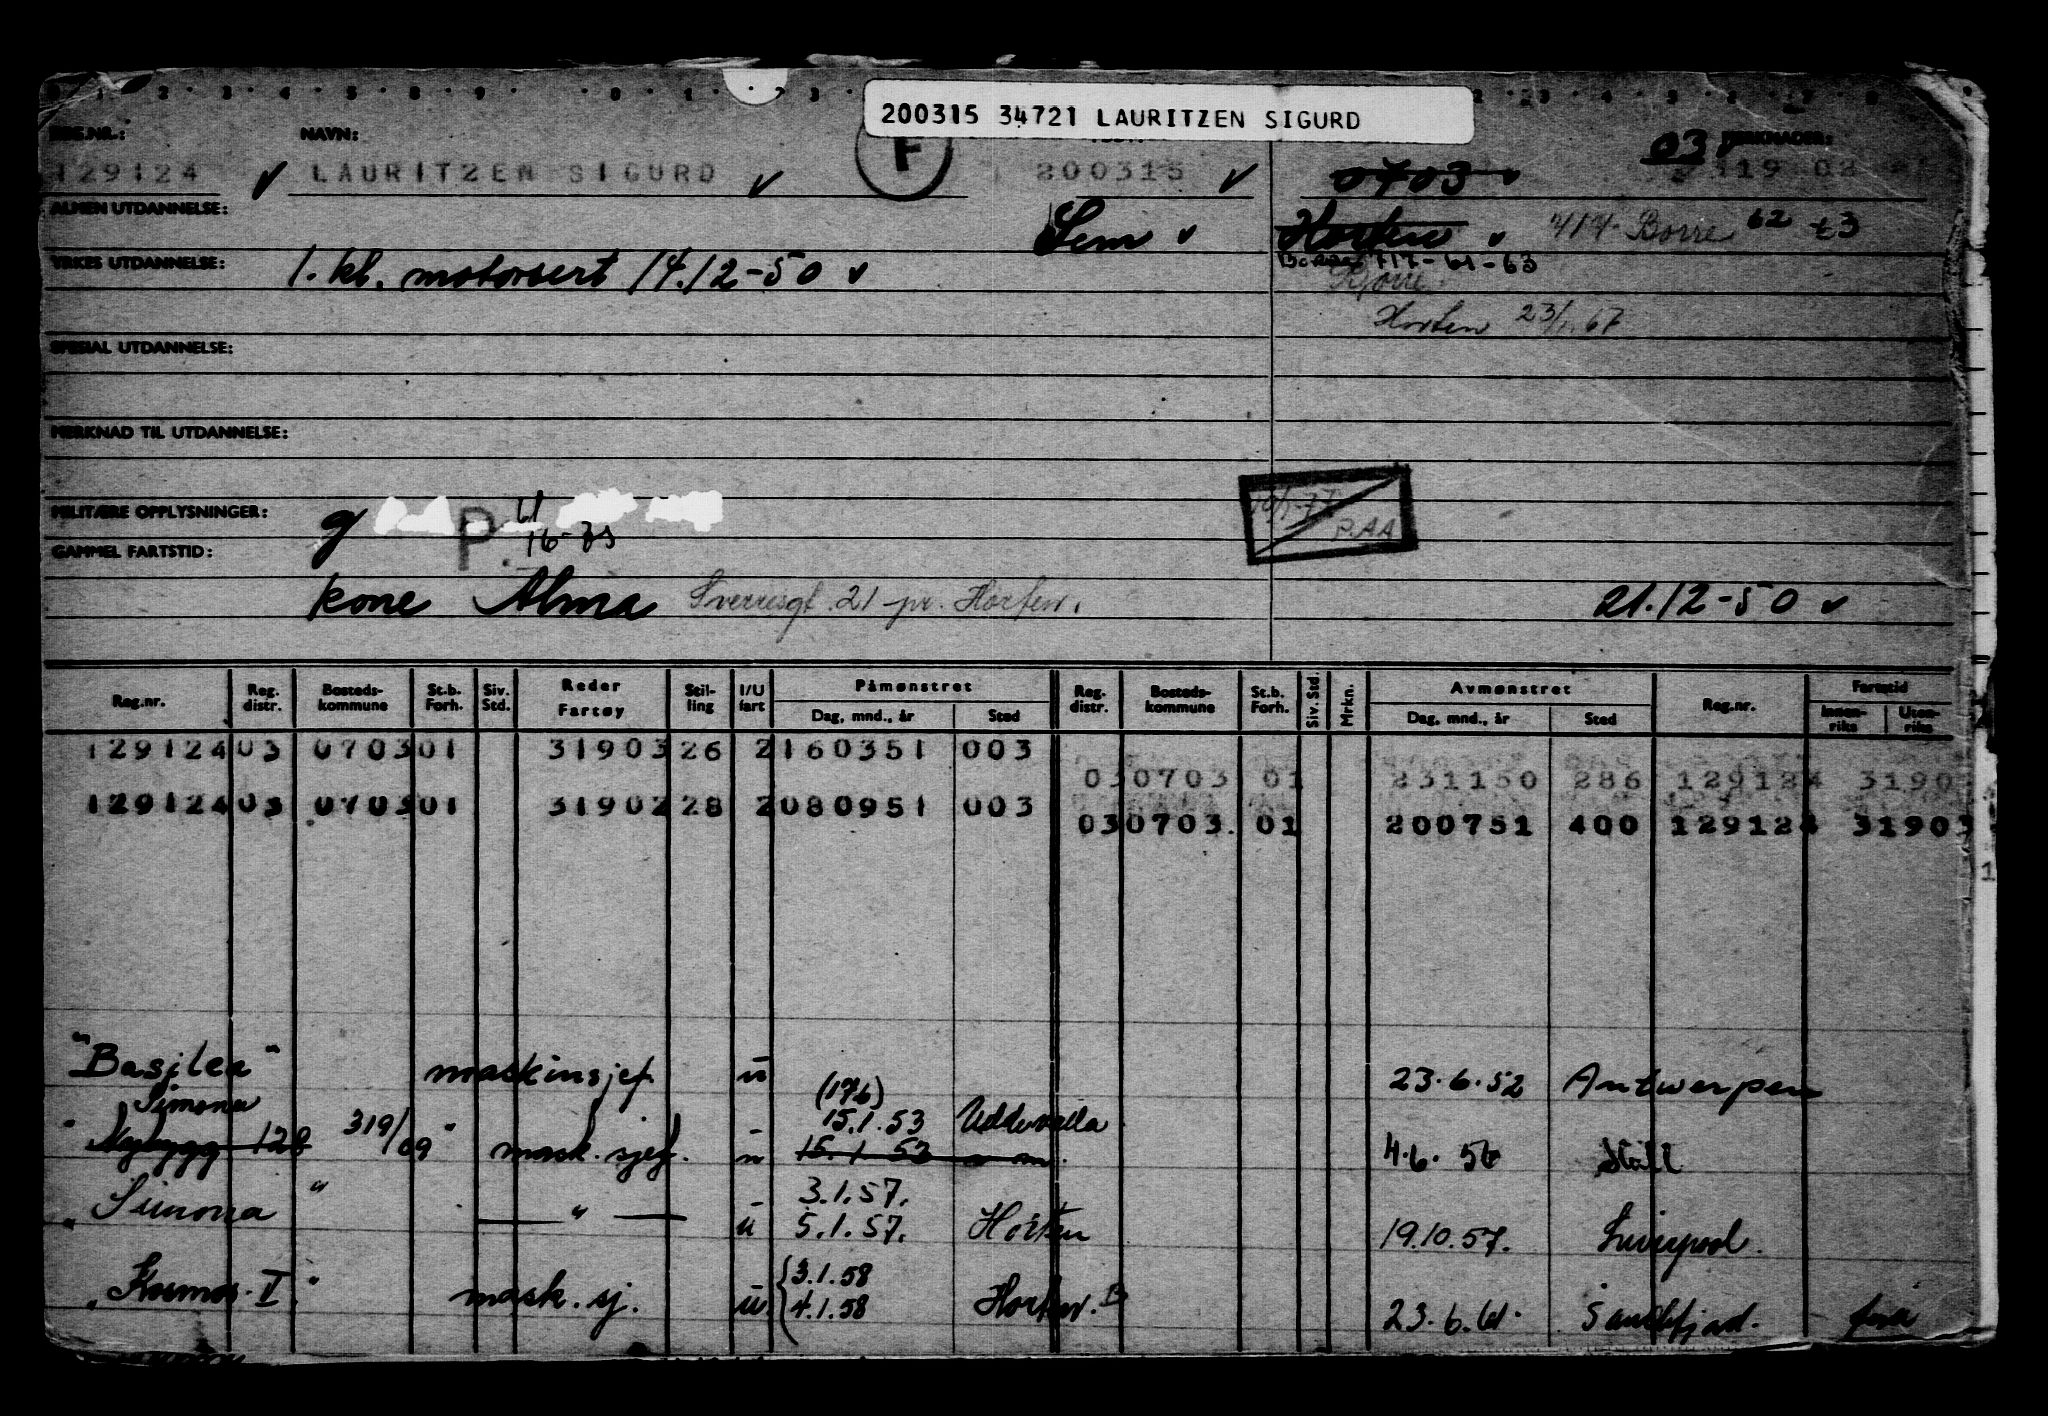 200315 34721 LAURITZEN SIGURD
REG.NR.: NAVN: F MERKNADER:
129124 LAURITZEN SIGURD 200315 0703 03 31902
ALMEN UTDANNELSE: Sem Horten 717 Borre 62 63
YRKES UTDANNELSE: 1. kl. motorsert 14.12-50 Borre 717-61-63
Borre
Horten 23/1.67
SPESIAL UTDANNELSE:
MERKNAD TIL UTDANNELSE:
MILITÆRE OPPLYSNINGER: g P. 61
16-
P.AA
GAMMEL FARTSTID:
kone Alma Sverresgt. 21 pr. Horten. 21.12-50
Reg.nr. Reg. distr. Bosteds-kommune St.b. Forh. Siv. Std. Reder Fartøy Stil-ling I/U fart Påmønstret Dag, mnd., år Sted Reg. distr. Bosteds-kommune St.b. Forh. Siv. Std. Mrkn. Avmønstret Dag, mnd., år Sted Reg.nr. Fartstid Innen-riks Uten-riks
129124 03 0703 01 31903 26 2 160351 003
03 0703 01 231150 286 129124 3190
129124 03 0703 01 31902 28 2 080951 003
03 0703. 01 200751 400 129124 31903
"Basilea" maskinsjef u 23.6.52 Antwerpen
Simona (176)
15.1.53 Uddevalla
"Nybygg 128 319/09" mask. sjef. u 15.1.53 4.6.56
"Simona" — " — u 3.1.57.
5.1.57. Horten 19.10.57. Liverpool.
"Kosmos I" mask. sj. u 3.1.58
4.1.58 Horten. B 23.6.61. Sandefjord.